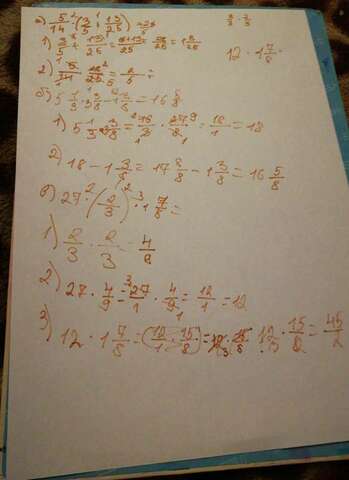 а) 5/14 · (3/5 + 13/25) =
1) 3/5 + 13/25 = 15+13/25 = 28/25 = 1 3/25
2) 5/14 · 28/25 = 2/5
б) 5 1/3 : 3/8 - 1 3/8 = 16 5/8
1) 5 1/3 : 3/8 = 16/3 · 27/8 = 18/1 = 18
2) 18 - 1 3/8 = 17 8/8 - 1 3/8 = 16 5/8
в) 27 · (2/3)² · 1 7/8 =
1) 2/3 · 2/3 = 4/9
2) 27 · 4/9 = 27/1 · 4/9 = 12/1 = 12
3) 12 · 1 7/8 = (12/1 · 15/8) = 12 · 15/8 = 45/2
2/3 · 2/3
12 · 1 7/8 ·